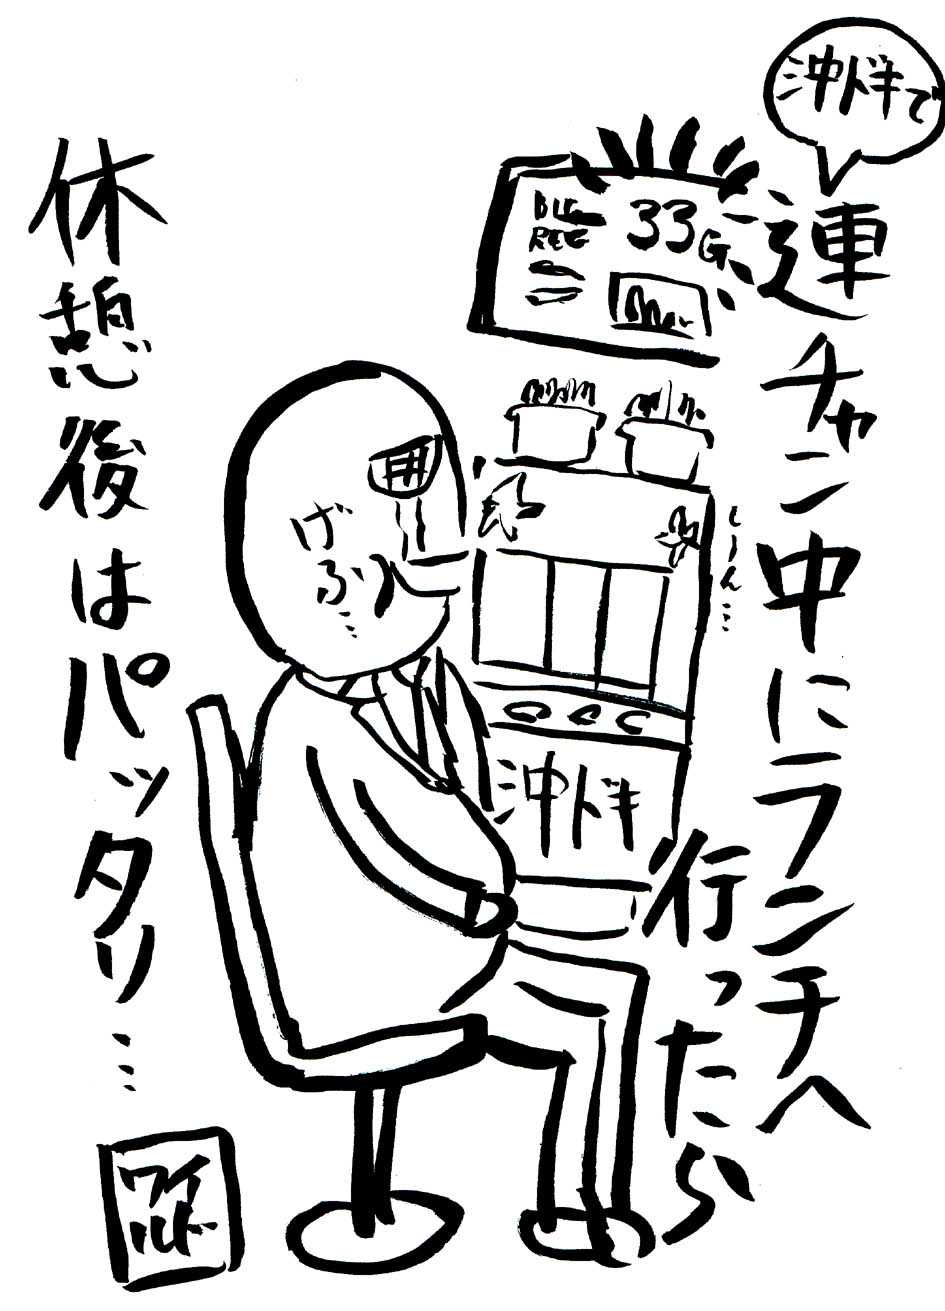 沖ドキで
連チャン中にランチへ
行ったら
BIG
REG
33G
しーん…
げ
ふっ…
沖ドキ
休憩後はパッタリ…
ワイ
ルド